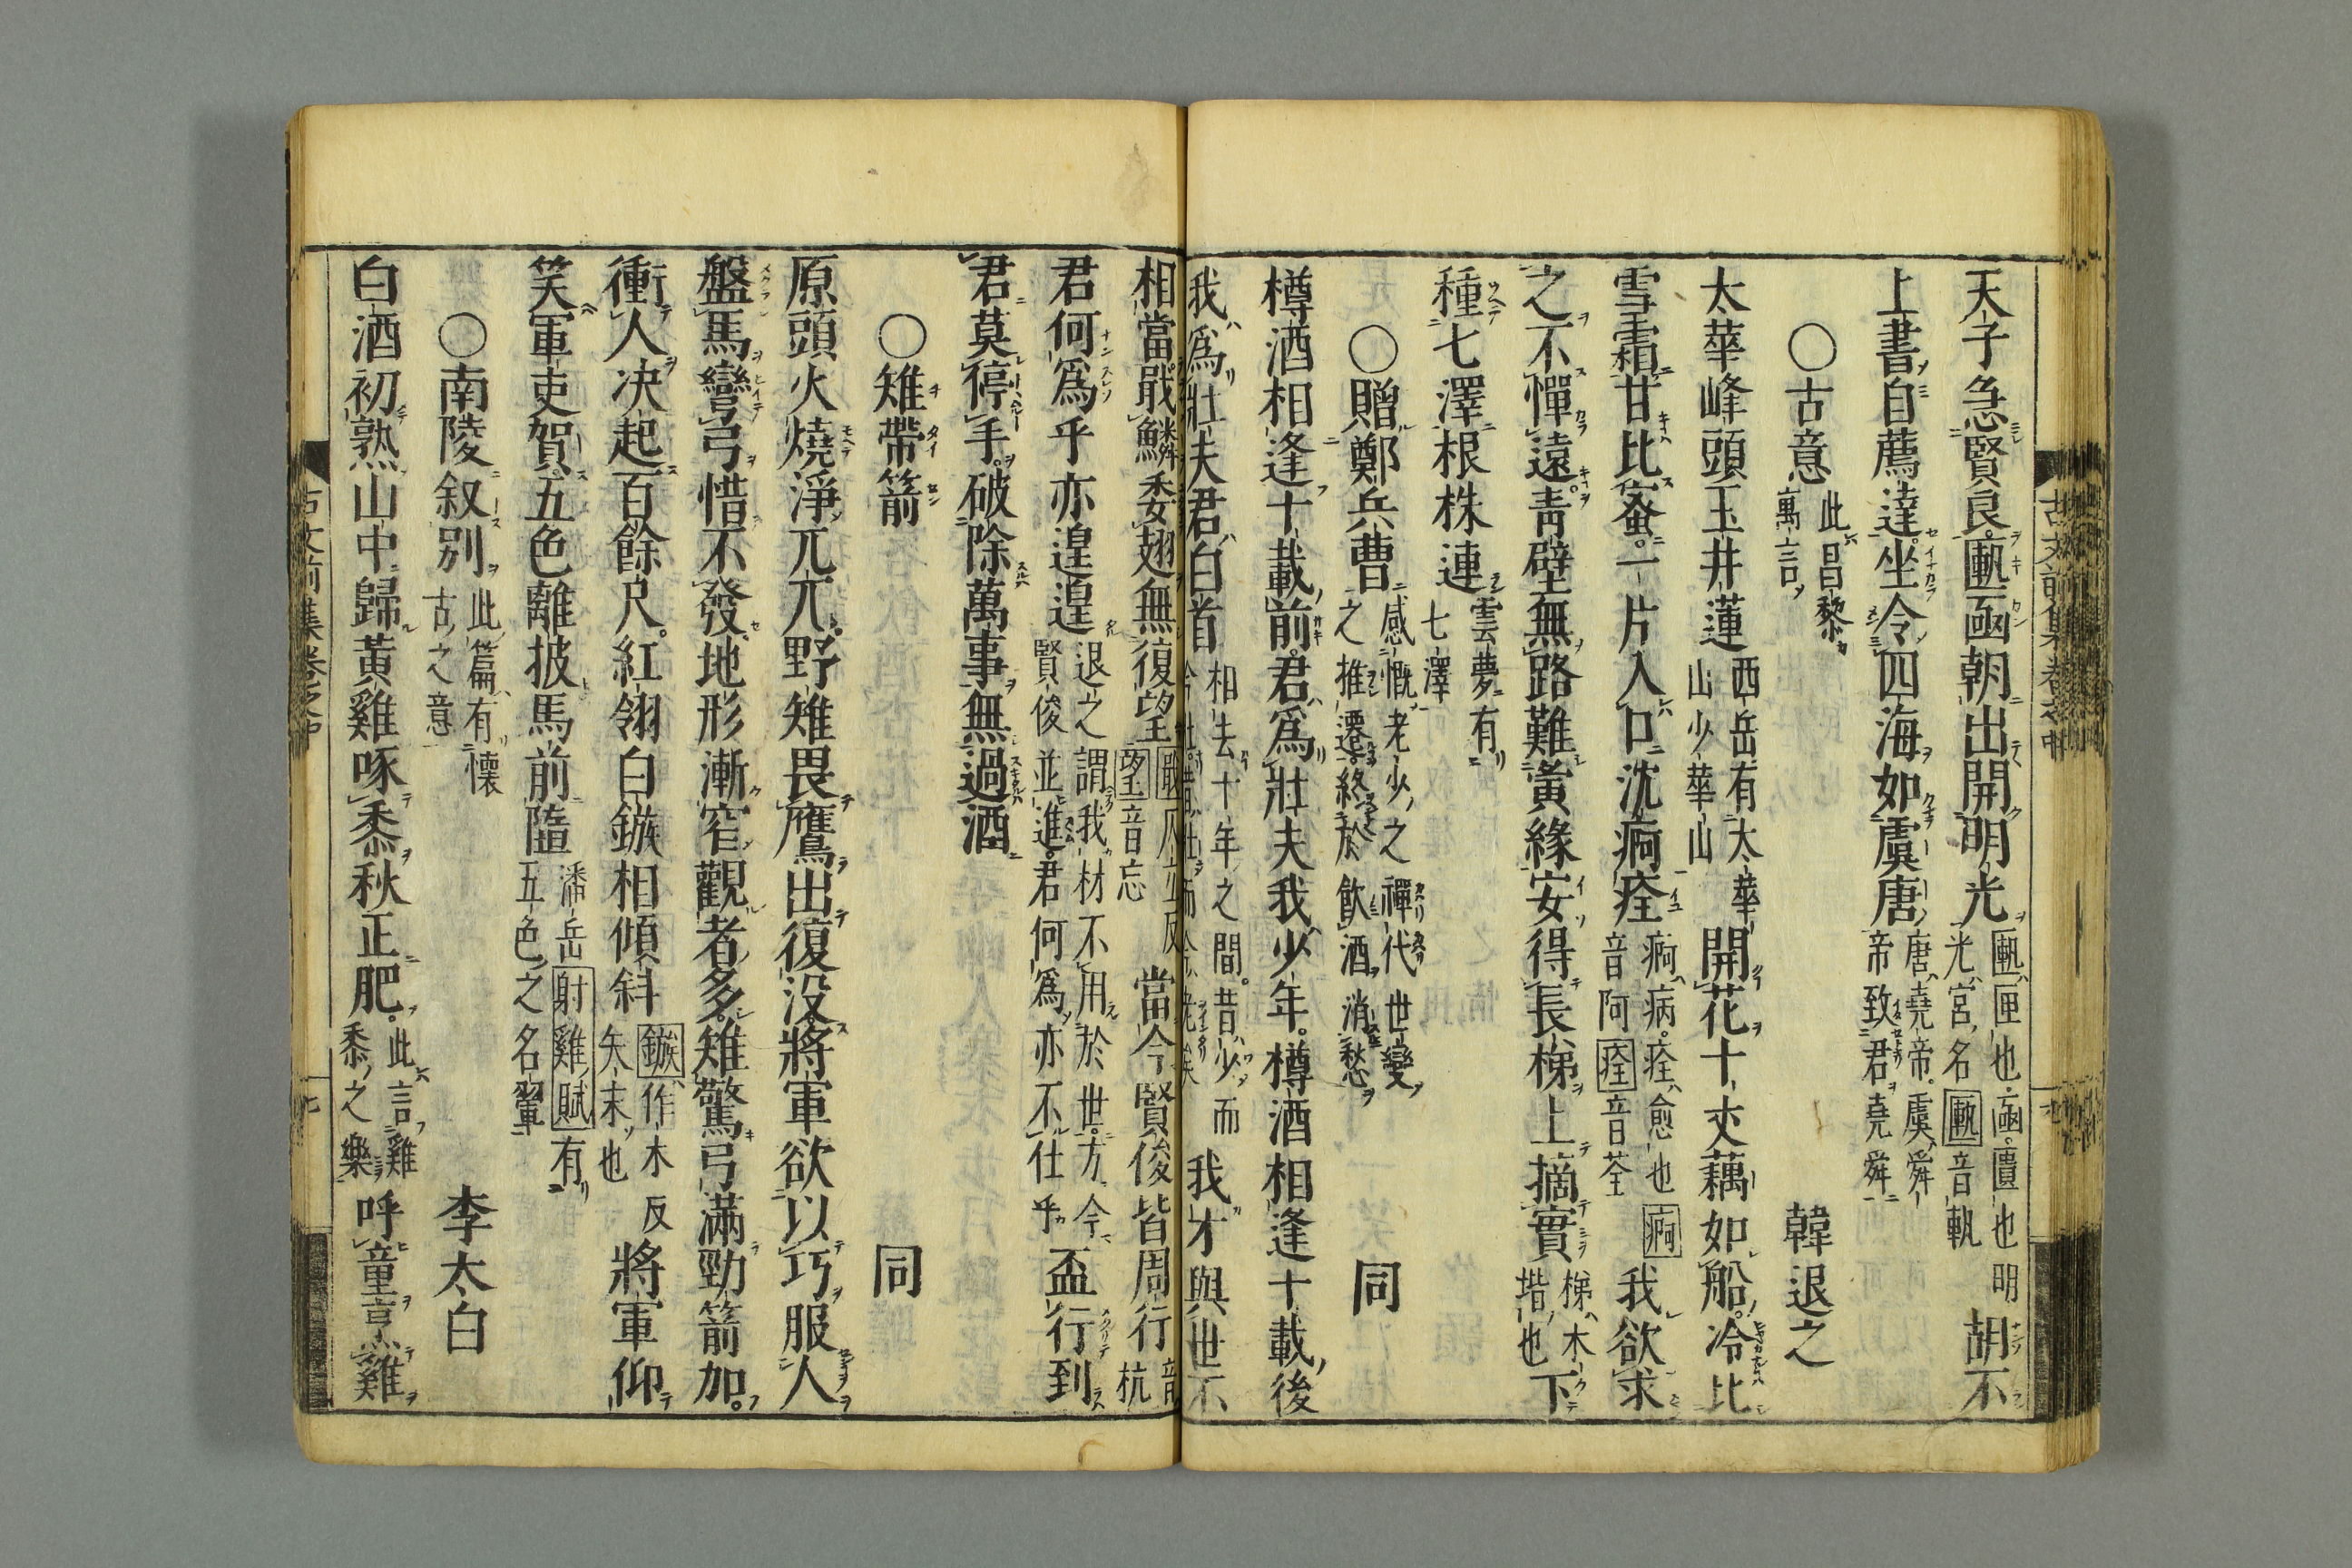 天子急賢良匭凾朝出開明光匭匣也凾匱也明光宮名匭音軌胡不
上書自薦達坐令四海如虞唐唐堯帝虞舜帝致君堯舜
〇古意此昌黎萬言韓退之
太華峰頭玉井蓮西岳有太華山少華山開花十丈藕如船冷比
雪霜甘比蜜一片入口沈痾痊痾病痊愈也痾音阿痊音荃我欲求
之不憚遠青壁無路難夤緣安得長梯上摘實梯木堦也下
種七澤根株連雲夢有七澤
〇贈鄭兵曹感慨老少之禪代世變之推遷終於飲酒消愁同
樽酒相逢十載前君為壯夫我少年樽酒相逢十載後
我為壯夫君白首相去十年之間昔少而我才與世不
相當戢鱗委翅無復望望音忘當今賢俊皆周行音杭
君何為乎亦遑遑退之謂我材不用於世方今賢俊並進君何為亦不仕乎盃行到
君莫停手破除萬事無過酒
〇雉帶箭同
原頭火燒淨兀兀野雉畏鷹出復没將軍欲以巧服人
盤馬彎弓惜不發地形漸窄觀者多雉驚弓滿勁箭加
衝人决起百餘尺紅翎白鏃相傾斜鏃作木反矢末也將軍仰
笑軍吏賀五色離披馬前墮潘岳射雉賦有五色之名翬
〇南陵叙别此篇有懷古之意李太白
白酒初熟山中歸黃雞啄黍秋正肥此言雞黍之樂呼童烹雞
古文前集卷之中